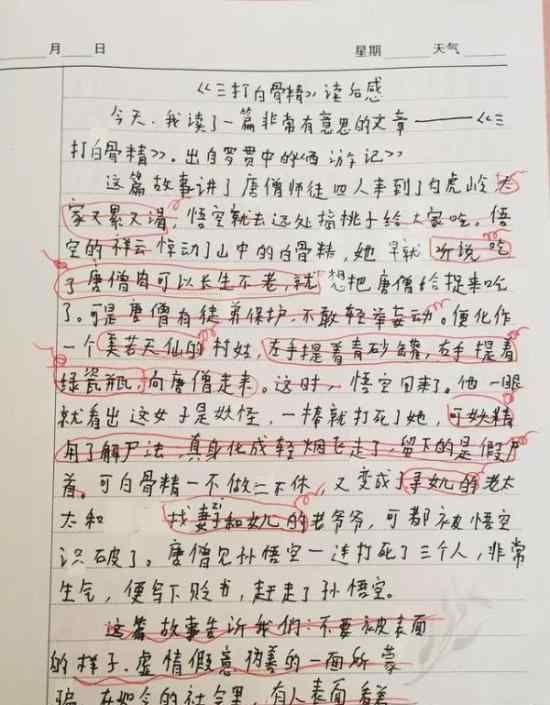 月 日 星期 天气
《三打白骨精》读后感
今天,我读了一篇非常有意思的文章———《三
打白骨精》。出自罗贯中的《西游记》
这篇故事讲了唐僧师徒四人来到了白虎岭大
家又累又渴,悟空就去远处摘桃子给大家吃。悟
空的祥云惊动了山中的白骨精,她早就听说吃
了唐僧肉可以长生不老,就想把唐僧给捉来吃
了。可是唐僧有徒弟保护,不敢轻举妄动。便化作
一个美若天仙的村姑,左手提着青砂罐,右手提着
绿瓷瓶,向唐僧走来。这时,悟空回来了。他一眼
就看出这女子是妖怪,一棒就打死了她,可妖精
用了解尸法,真身化成轻烟飞走了,留下的是假尸
首。可白骨精一不做二不休,又变成了寻女儿的老太
太和 找妻子和女儿的老爷爷,可都被悟空
识破了。唐僧见孙悟空一连打死了三个人,非常
生气,便写下贬书,赶走了孙悟空。
这篇故事告诉我们:不要被表面
的样子、虚情假意伪善的一面所蒙
骗。在如今的社会里,有人表面看羊